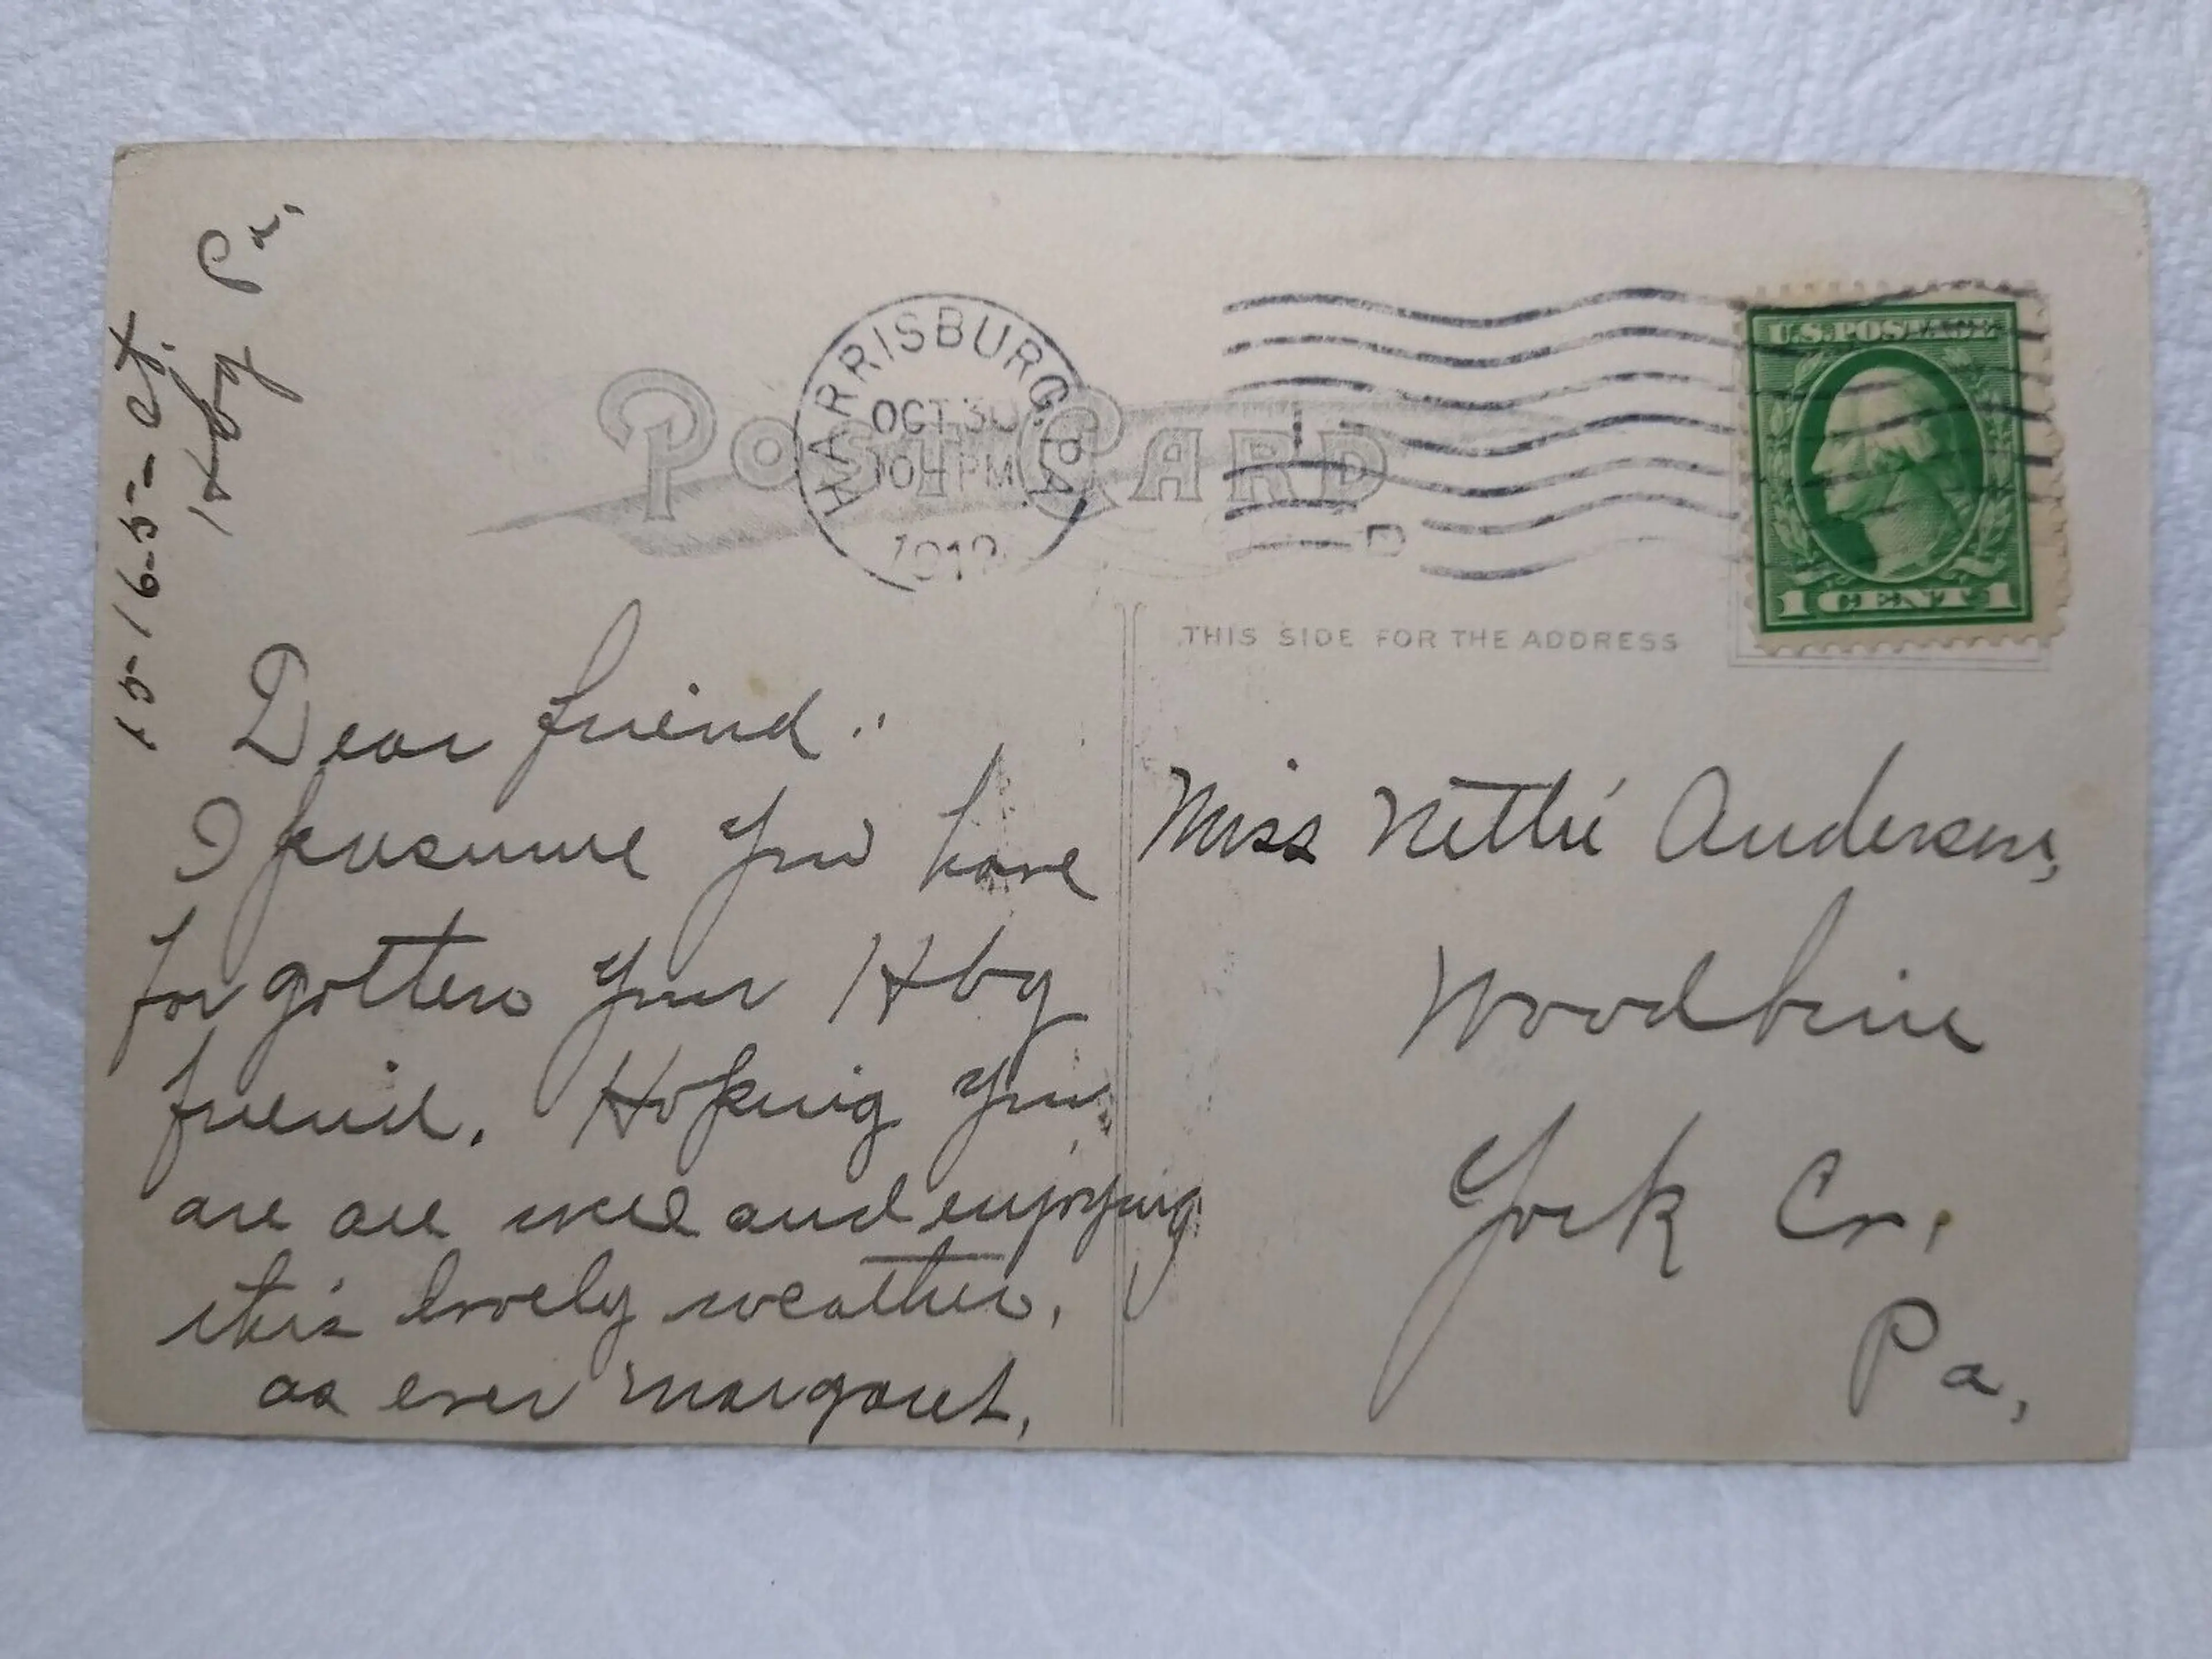 15-16-5-5- ct.
Hbg Pa.
POST CARD
HARRISBURG, PA.
OCT 30
10 - PM
1912
1
D
U.S. POSTAGE
1 CENT 1
THIS SIDE FOR THE ADDRESS
Dear friend:
I presume you have
forgotten your Hbg
friend. Hoping you
are all well and enjoying
this lovely weather.
as ever Margaret,
Miss Nettie Anderson,
Woodbine
York Co.
Pa,